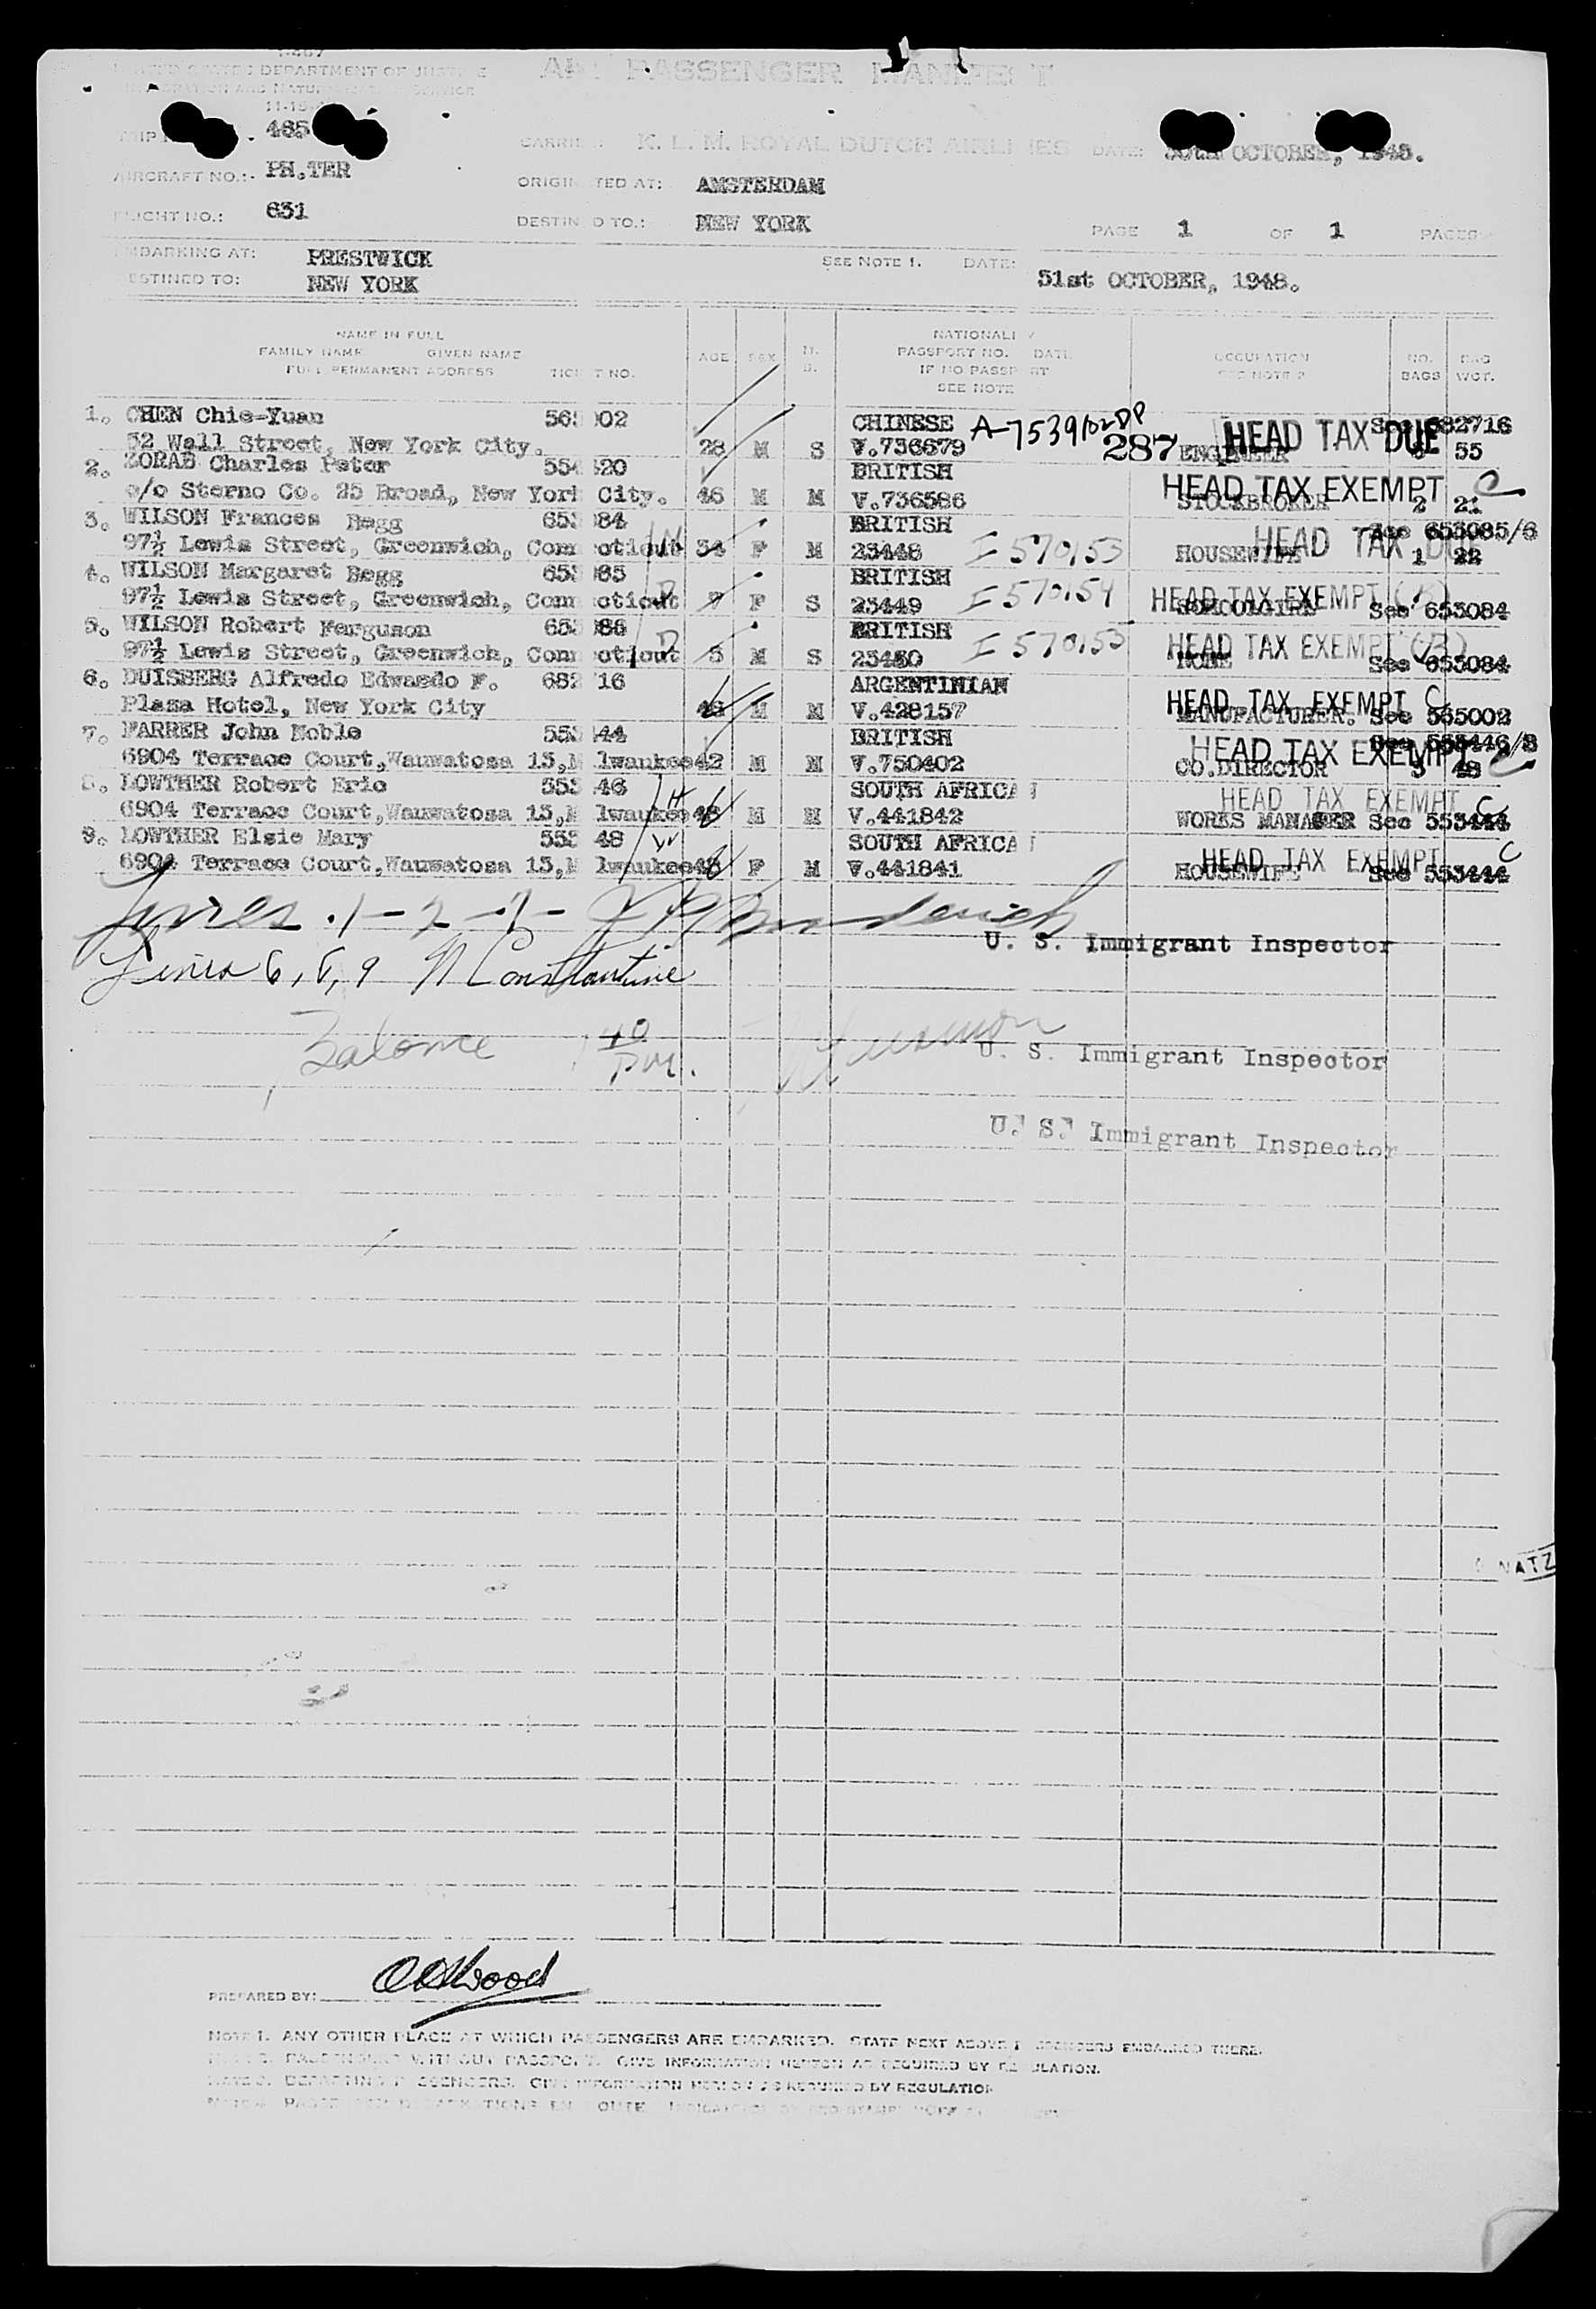 UNITED STATES DEPARTMENT OF JUSTICE
AIR PASSENGER MANIFEST
IMMIGRATION AND NATURALIZATION SERVICE
TRIP 465
CARRIER: K. L. M. ROYAL DUTCH AIRLINES DATE: OCTOBER, 1948.
AIRCRAFT NO.:- PH.TER
ORIGINATED AT: AMSTERDAM
FLIGHT NO.: 631
DESTINED TO.: NEW YORK
PAGE 1 OF 1 PAGES
EMBARKING AT: PRESTWICK
SEE NOTE 1. DATE: 31st OCTOBER, 1948.
DESTINED TO: NEW YORK
NAME IN FULL
FAMILY NAME GIVEN NAME
FULL PERMANENT ADDRESS TICKET NO.
AGE SEX M. S.
NATIONALITY
PASSPORT NO. DATE
IF NO PASSPORT
SEE NOTE
OCCUPATION
SEE NOTE 2
NO. BAGS
BAG WGT.
1. CHEN Chie-Yuan CHINESE A-7539102 DP See 682716
52 Wall Street, New York City. 28 M S V.736679 287 ENGINEER HEAD TAX DUE 55
2. ZORAB Charles Peter BRITISH
c/o Sterno Co. 25 Broad, New York City. 46 M M V.736586 STOCKBROKER 2 21
HEAD TAX EXEMPT C
3. WILSON Frances Begg BRITISH See 653085/6
97½ Lewis Street, Greenwich, Connecticut 34 F M 23448 I 570153 HOUSEWIFE 1 22
HEAD TAX DUE
4. WILSON Margaret Begg BRITISH
97½ Lewis Street, Greenwich, Connecticut 7 F S 23449 I 570154 See 653084
HEAD TAX EXEMPT (B)
5. WILSON Robert Ferguson BRITISH
97½ Lewis Street, Greenwich, Connecticut 5 M S 23450 I 570155 NONE See 653084
HEAD TAX EXEMPT (B)
6. DUISBERG Alfredo Edwardo F. 682716 ARGENTINIAN
Plaza Hotel, New York City M M V.428157 MANUFACTURER. See 565002
HEAD TAX EXEMPT C
7. FARRER John Noble BRITISH See 553446/8
6904 Terrace Court, Wauwatosa 13, Milwaukee 42 M M V.750402 CO.DIRECTOR 3 48
HEAD TAX EXEMPT C
8. LOWTHER Robert Eric SOUTH AFRICAN
6904 Terrace Court, Wauwatosa 13, Milwaukee M M V.441842 WORKS MANAGER See 553444
HEAD TAX EXEMPT C
9. LOWTHER Elsie Mary SOUTH AFRICAN
6904 Terrace Court, Wauwatosa 13, Milwaukee F M V.441841 HOUSEWIFE See 553444
HEAD TAX EXEMPT C
Lines 1-2-7-
U. S. Immigrant Inspector
Lines 6, 8, 9 N Constantine
Balance
U. S. Immigrant Inspector
U. S. Immigrant Inspector
NATZ
PREPARED BY:
NOTE 1. ANY OTHER PLACE AT WHICH PASSENGERS ARE EMBARKED. STATE NEXT ABOVE PASSENGERS EMBARKED THERE.
NOTE 2. PASSENGERS WITHOUT PASSPORT. GIVE INFORMATION HEREON AS REQUIRED BY REGULATION.
NOTE 3. DEPARTING PASSENGERS. GIVE INFORMATION HEREON AS REQUIRED BY REGULATION